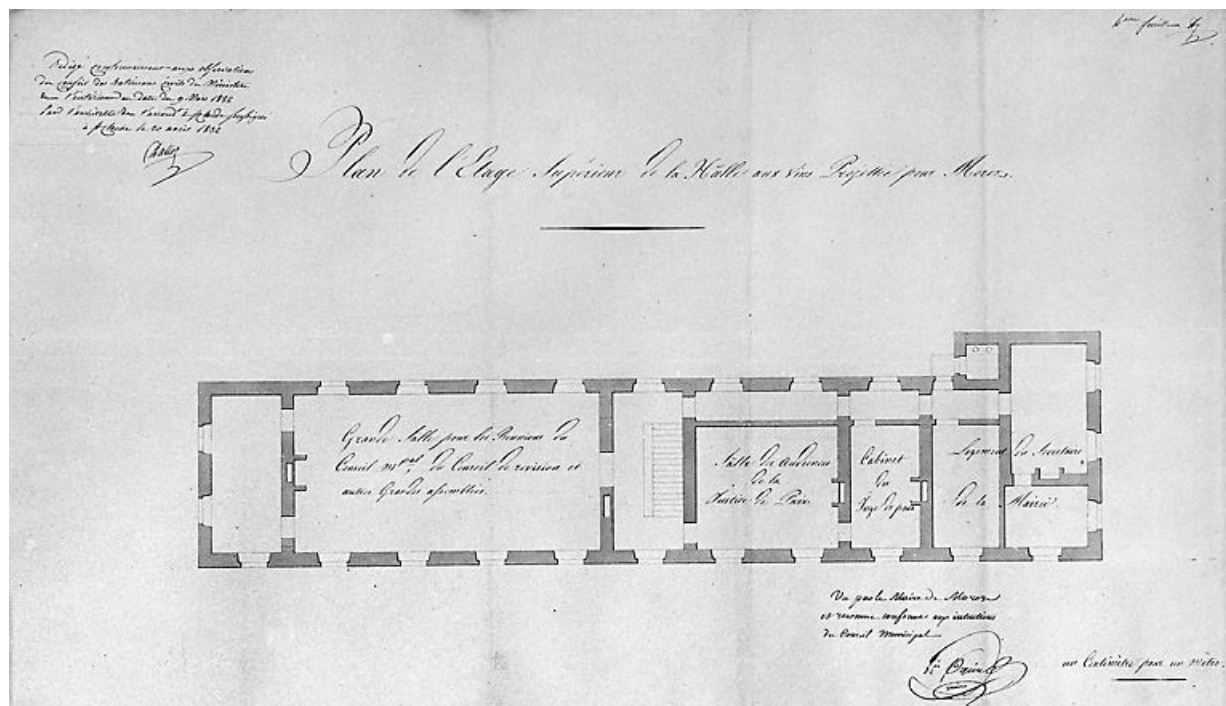 Rédigé conformement aux observations
du conseil des Batimens civils du Ministère
de l'intérieur en date du 9 Mars 1832
par l'architecte de l'arrond.t de St Claude soussigné
à St Claude le 20 avril 1832
Plan de l'Etage Supérieur de la Halle aux vins Projettée pour Morez.
Grande Salle pour les Réunions du
Conseil m.pal, du Conseil de révision et
autres Grandes assemblées.
Salle des Audiences
de la
Justice de Paix
Cabinet
du
Juge de paix
Logement du Secrétaire
de la Mairie
Vu par le Maire de Morez
et reconnu conforme aux intentions
du Conseil Municipal
un Centimètre pour un Mètre.